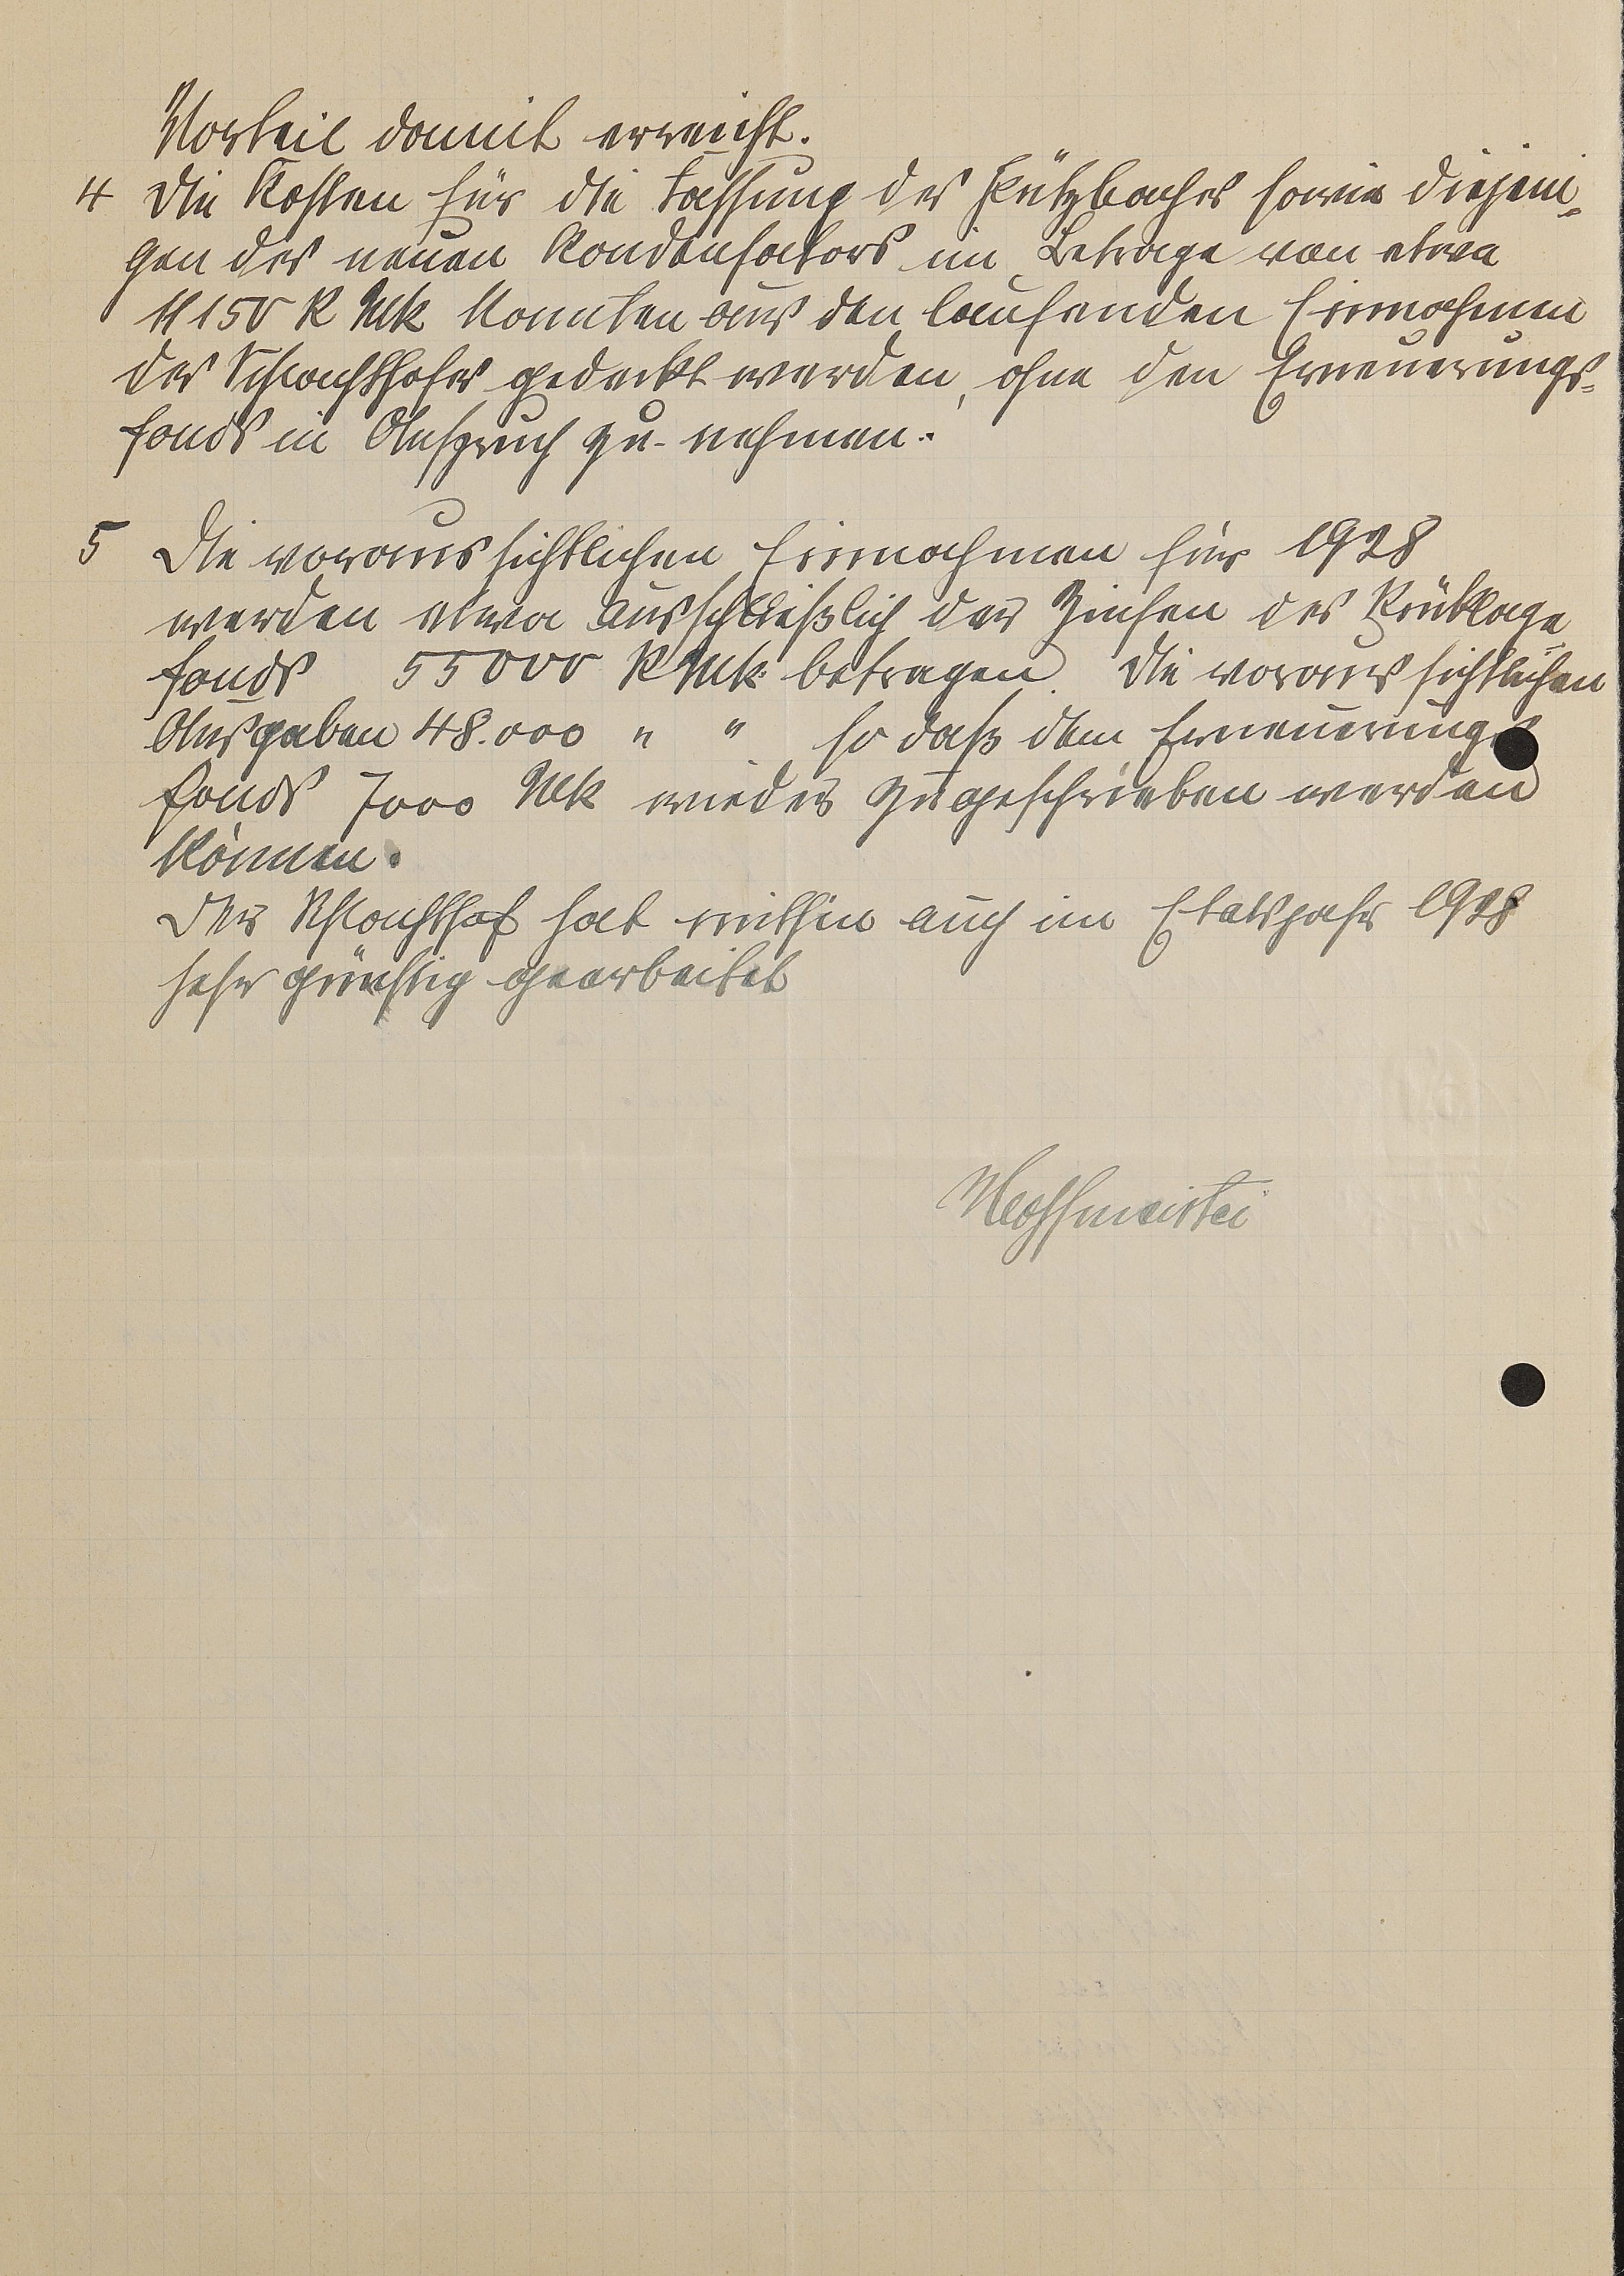 Vorteil damit erreicht.
4 Die Kosten für die Fassung des Pützbaches sowie diejeni-
gen des neuen Kondensators im Betrage von etwa
11150 R Mk konnten aus den laufenden Einnahmen
des Schlachthofes gedeckt werden, ohne den Erneuerungs-
fonds in Anspruch zu nehmen.
5 Die voraussichtlichen Einnahmen für 1928
werden etwa ausschließlich der Zinsen des Rücklage
fonds 55000 R Mk betragen. Die voraussichtlichen
Ausgaben 48.000 " " so daß dem Erneuerungs
fonds 7000 Mk wieder zugeschrieben werden
können.
Der Schlachthof hat mithin auch im Etatsjahr 1928
sehr günstig gearbeitet